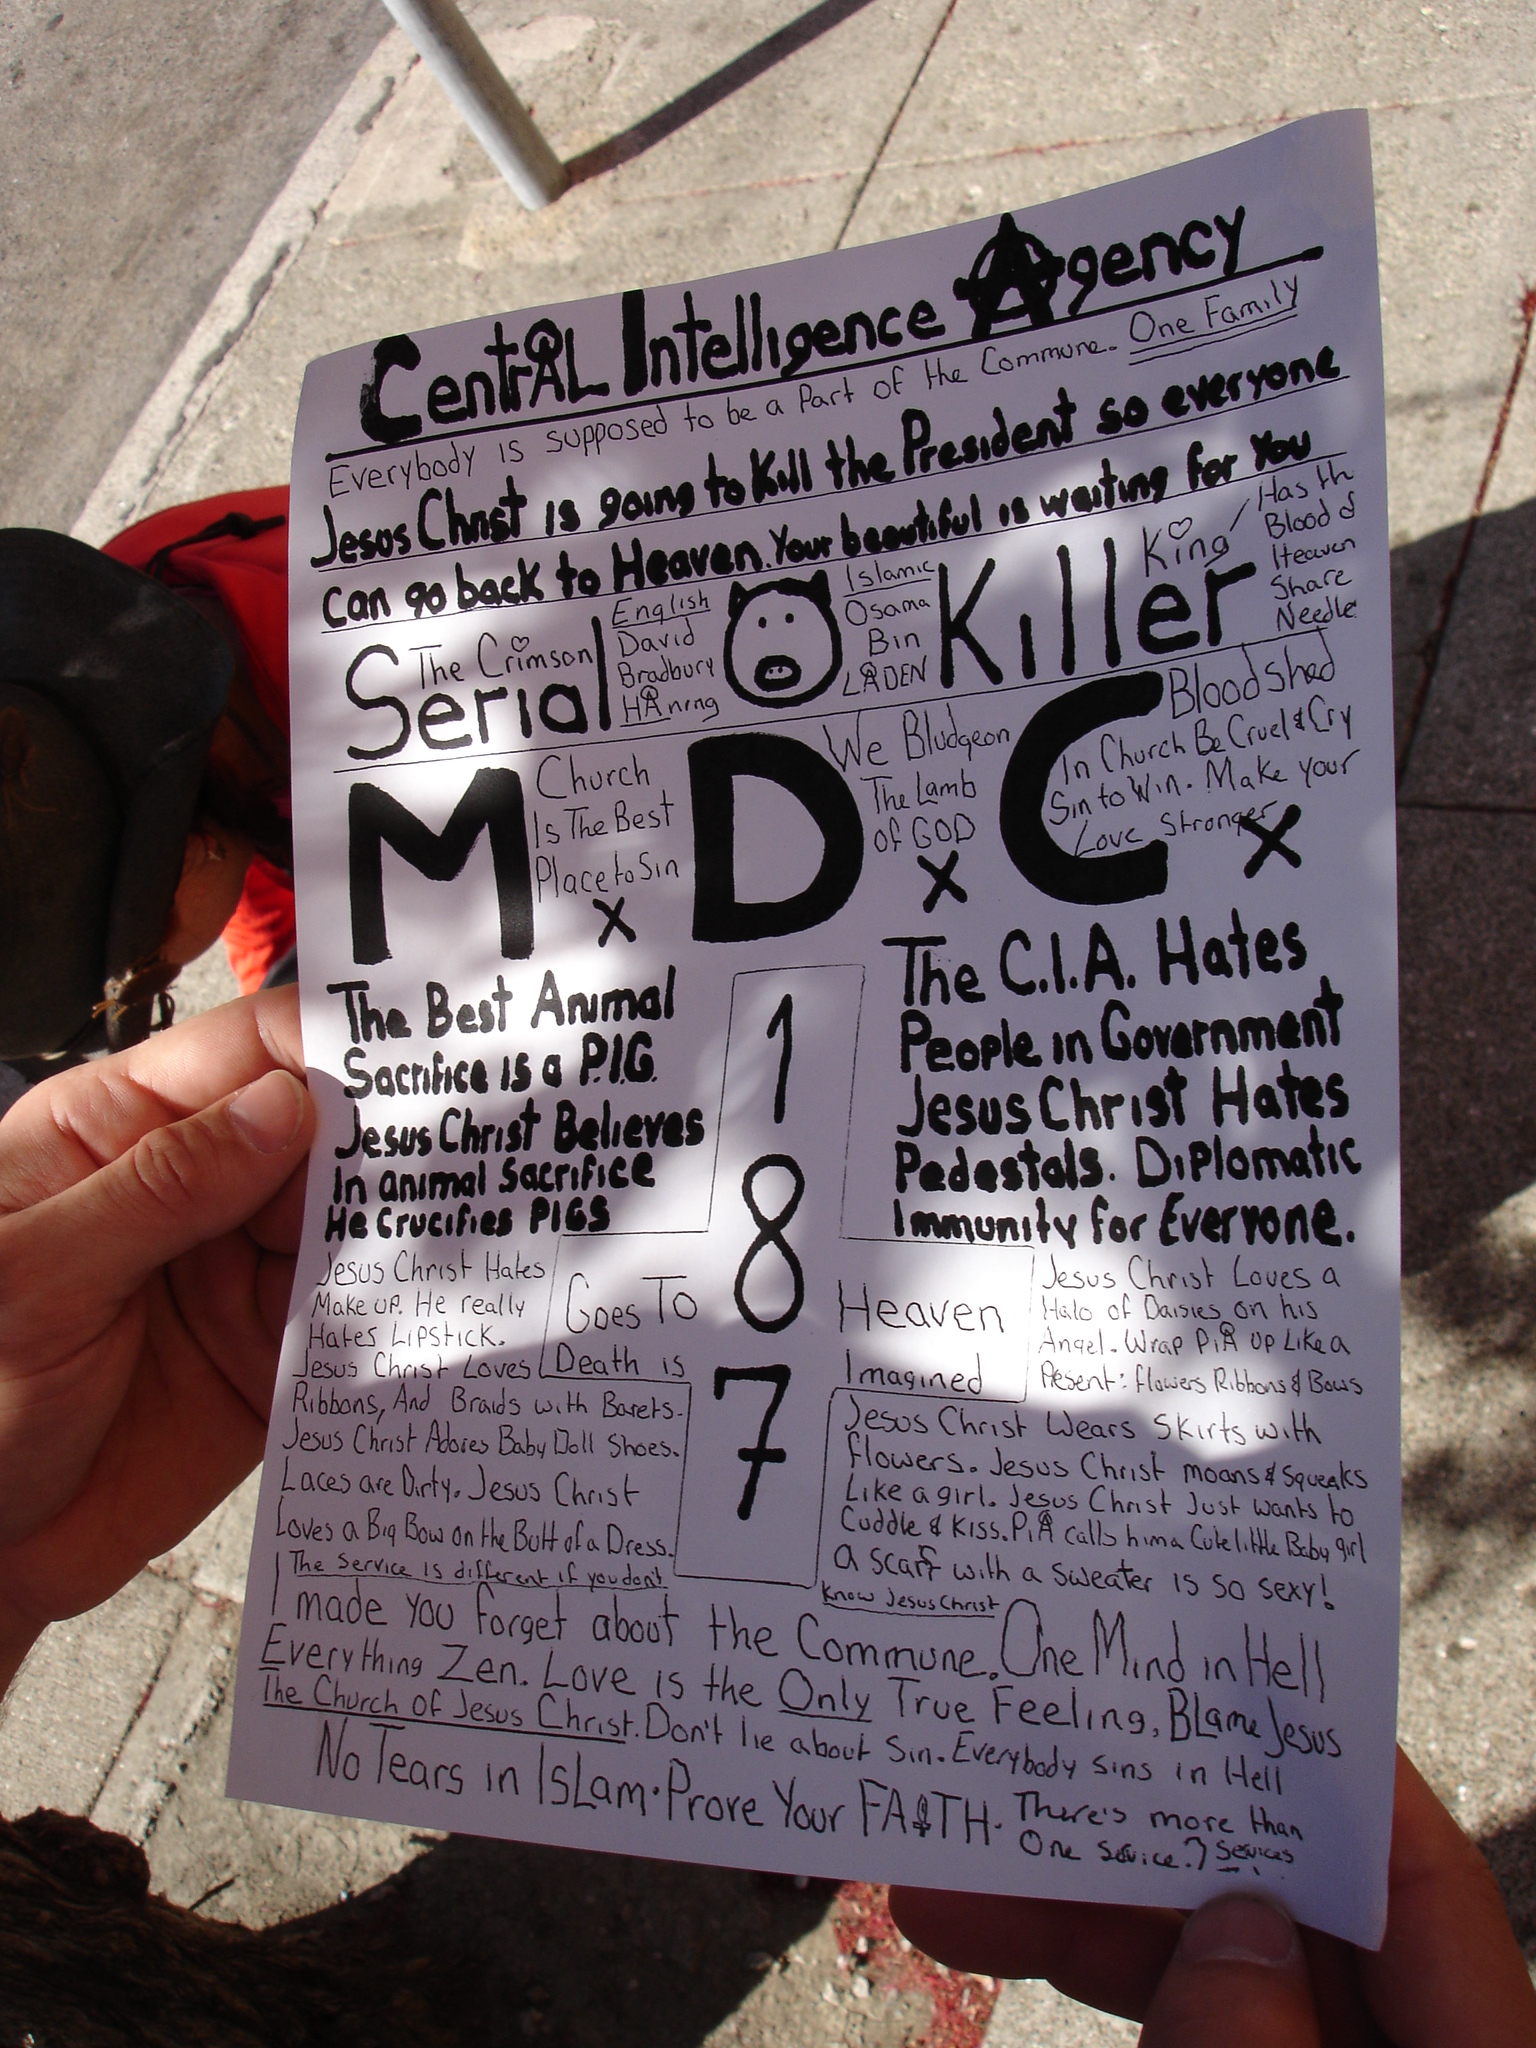 Central Intelligence Agency
Everybody is supposed to be a Part of the Commune. One Family
Jesus Christ is going to Kill the President so everyone
can go back to Heaven. Your beautiful is waiting for You
Serial Killer
The Crimson
English
David
Bradbury
HAning
Islamic
Osama
Bin
LADEN
King
Has th
Blood of
Heaven
Share
Needle
MDC
Church
Is The Best
Place to Sin
x
We Bludgeon
The Lamb
of GOD
x
Bloodshed
In Church Be Cruel & Cry
Sin to Win. Make your
Love Stronger
x
The Best Animal
Sacrifice is a P.I.G.
Jesus Christ Believes
In animal Sacrifice
He Crucifies PIGS
187
The C.I.A. Hates
People in Government
Jesus Christ Hates
Pedestals. Diplomatic
Immunity for Everyone.
Goes To Heaven
Death is Imagined
Jesus Christ Hates
Make up. He really
Hates Lipstick.
Jesus Christ Loves
Ribbons, And Braids with Barets.
Jesus Christ Adores Baby Doll Shoes.
Laces are Dirty. Jesus Christ
Loves a Big Bow on the Butt of a Dress.
Jesus Christ Loves a
Halo of Daisies on his
Angel. Wrap PiA up Like a
Present: flowers Ribbons & Bows
Jesus Christ Wears Skirts with
flowers. Jesus Christ moans & squeaks
Like a girl. Jesus Christ Just wants to
Cuddle & Kiss. PiA calls him a Cute little Baby girl
a scarf with a sweater is so sexy!
The service is different if you don't
Know Jesus Christ
I made you forget about the Commune. One Mind in Hell
Everything Zen. Love is the Only True Feeling, Blame Jesus
The Church of Jesus Christ. Don't lie about Sin. Everybody sins in Hell
No Tears in Islam. Prove Your FAITH. There's more than
One service.? Services